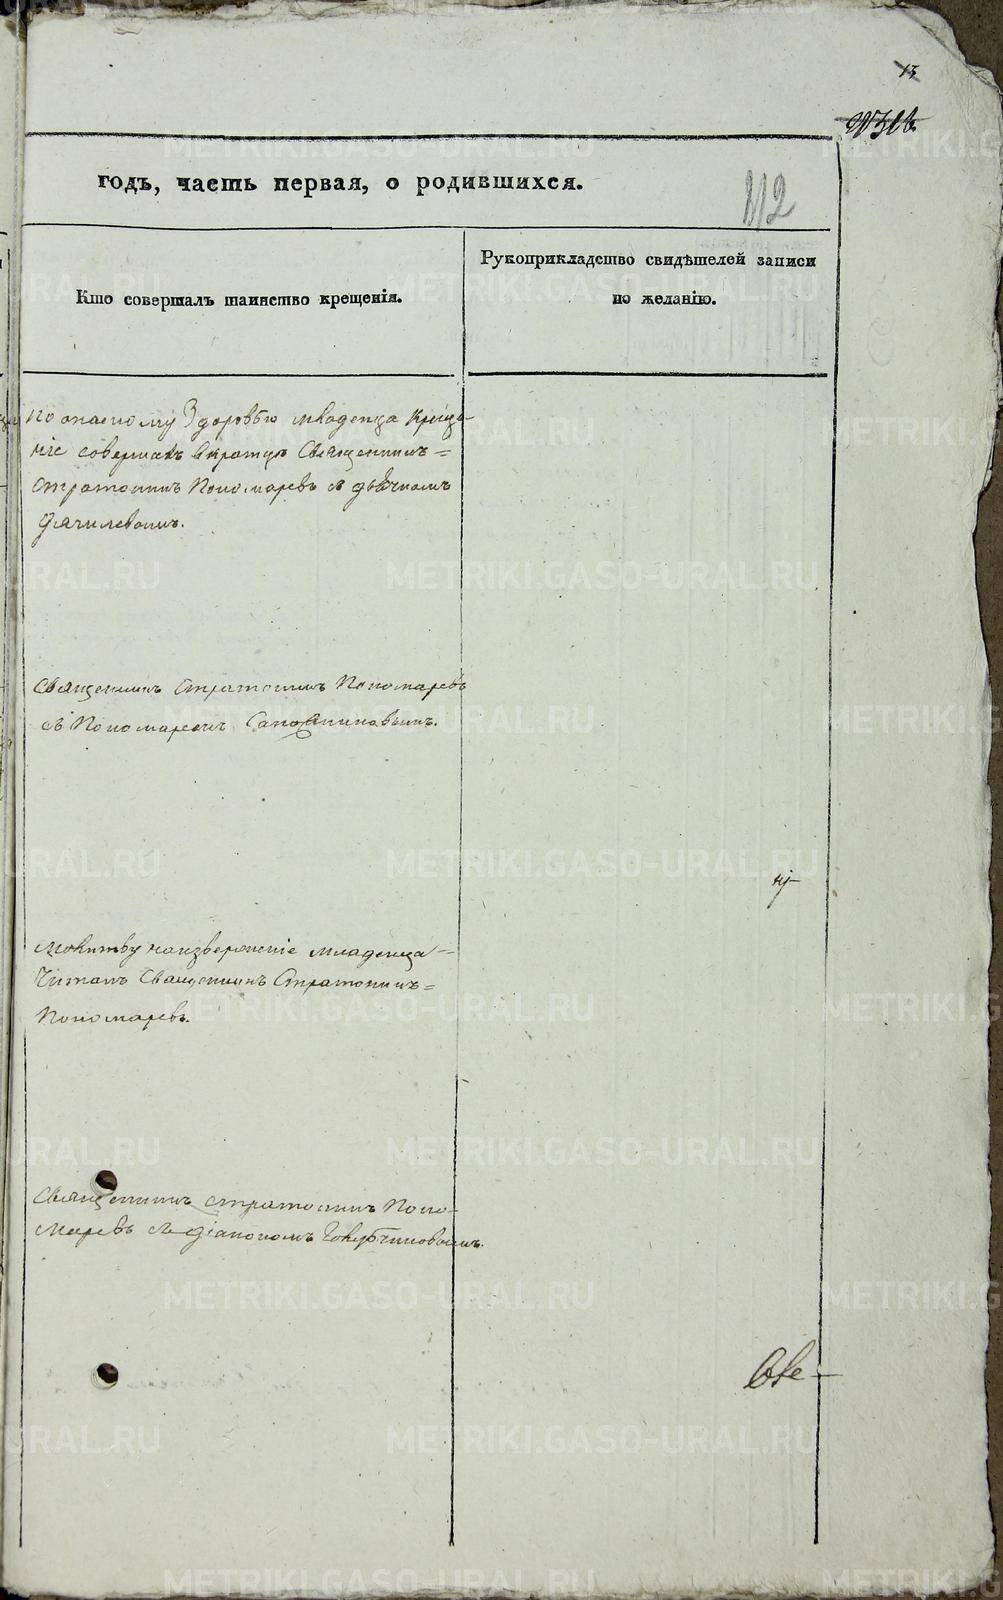 13
годъ, часть первая, о родившихся.
112
Кто совершалъ таинство крещенія.
Рукоприкладство свидѣтелей записи
по желанію.
По опасному Здоровью младенца Креще-
ніе совершалъ вкратцѣ Священникъ =
Стратоникъ Пономаревъ съ дьячкомъ
Священникъ Стратоникъ Пономаревъ
съ Пономаремъ Сапожниковымъ.
Молитву наизверженіе младенца =
Читалъ Священникъ Стратоникъ =
Пономаревъ.
Священникъ Стратоникъ Поно-
маревъ съ Діакономъ
METRIKI.GASO-URAL.RU